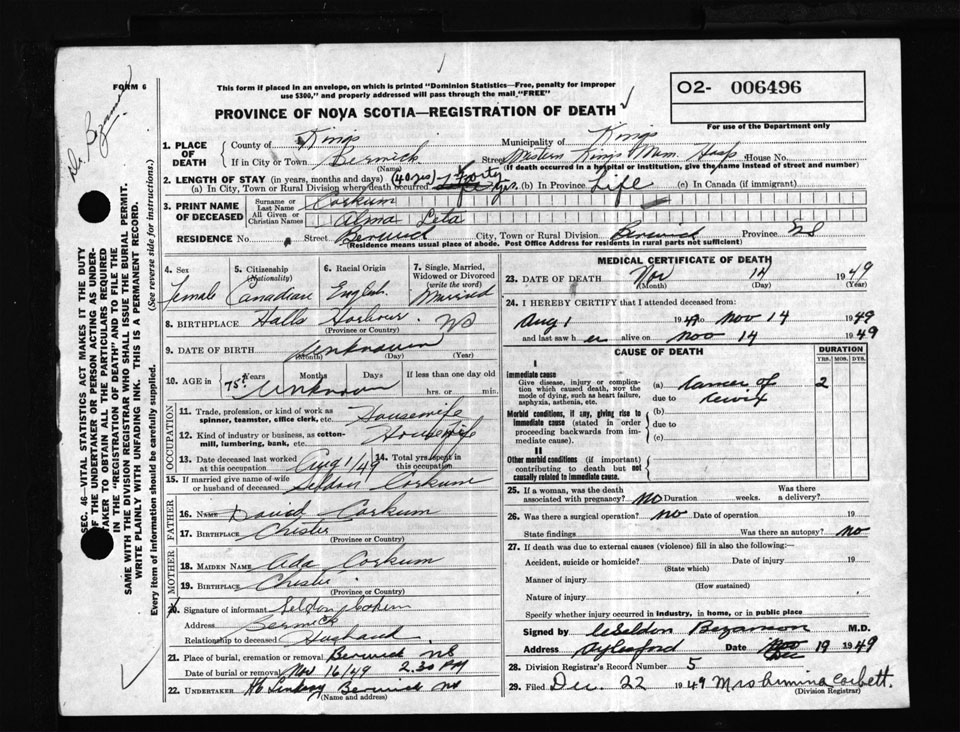 FORM 6
Dr. Bezanson
This form if placed in an envelope, on which is printed "Dominion Statistics—Free, penalty for improper
use $300," and properly addressed will pass through the mail "FREE"
PROVINCE OF NOVA SCOTIA—REGISTRATION OF DEATH
O2- 006496
For use of the Department only
SEC. 46–VITAL STATISTICS ACT MAKES IT THE DUTY
OF THE UNDERTAKER OR PERSON ACTING AS UNDER-
TAKER TO OBTAIN ALL THE PARTICULARS REQUIRED
IN THE "REGISTRATION OF DEATH" AND TO FILE THE
SAME WITH THE DIVISION REGISTRAR WHO SHALL ISSUE THE BURIAL PERMIT.
WRITE PLAINLY WITH UNFADING INK. THIS IS A PERMANENT RECORD.
Every item of information should be carefully supplied. (See reverse side for instructions.)
1. PLACE OF DEATH
County of Kings Municipality of Kings
If in City or Town Berwick Street Western Kings Mem. Hosp House No.
(Name) (If death occurred in a hospital or institution, give the name instead of street and number)
2. LENGTH OF STAY (in years, months and days) (40 yrs) Forty
(a) In City, Town or Rural Division where death occurred yrs. (b) In Province Life (c) In Canada (if immigrant)
3. PRINT NAME OF DECEASED
Surname or Last Name Corkum
All Given or Christian Names Alma Leta
RESIDENCE No. Street Berwick City, Town or Rural Division Berwick Province NS
(Residence means usual place of abode. Post Office Address for residents in rural parts not sufficient)
4. Sex 5. Citizenship (Nationality) 6. Racial Origin 7. Single, Married, Widowed or Divorced (write the word)
Female Canadian English Married
8. BIRTHPLACE Halls Harbour NS
(Province or Country)
9. DATE OF BIRTH unknown
(Month) (Day) (Year)
10. AGE in Years Months Days If less than one day
75 Unknown hrs. or min.
OCCUPATION
11. Trade, profession, or kind of work as spinner, teamster, office clerk, etc. Housewife
12. Kind of industry or business, as cotton-mill, lumbering, bank, etc. Housewife
13. Date deceased last worked at this occupation Aug 1/49 14. Total yrs. spent in this occupation
15. If married give name of wife or husband of deceased Seldon Corkum
FATHER
16. NAME David Corkum
17. BIRTHPLACE Chester
(Province or Country)
MOTHER
18. MAIDEN NAME Ada Corkum
19. BIRTHPLACE Chester
(Province or Country)
20. Signature of informant Seldon Corkum
Address Berwick
Relationship to deceased Husband
21. Place of burial, cremation or removal Berwick NS
Date of burial or removal Nov 16/49 2.30 PM
22. UNDERTAKER Lindsay Berwick NS
(Name and address)
MEDICAL CERTIFICATE OF DEATH
23. DATE OF DEATH Nov 14 1949
(Month) (Day) (Year)
24. I HEREBY CERTIFY that I attended deceased from:
Aug 1 1949 to Nov 14 1949
and last saw her alive on Nov 14 1949
CAUSE OF DEATH DURATION
YRS. MOS. DYS.
I
Immediate cause
Give disease, injury or complication which caused death, not the mode of dying, such as heart failure, asphyxia, asthenia, etc.
(a) Cancer of 2
due to cervix
Morbid conditions, if any, giving rise to immediate cause (stated in order proceeding backwards from immediate cause).
(b)
due to
(c)
II
Other morbid conditions (if important) contributing to death but not causally related to immediate cause.
25. If a woman, was the death associated with pregnancy? No Duration weeks. Was there a delivery?
26. Was there a surgical operation? no Date of operation 19
State findings Was there an autopsy? no
27. If death was due to external causes (violence) fill in also the following:—
Accident, suicide or homicide? Date of injury 19
(State which)
Manner of injury
(How sustained)
Nature of injury
Specify whether injury occurred in industry, in home, or in public place
Signed by Seldon Bezanson M.D.
Address Aylesford Date Nov Dec 19 1949
28. Division Registrar's Record Number 5
29. Filed Dec. 22 1949 Mrs Corbett.
(Division Registrar)